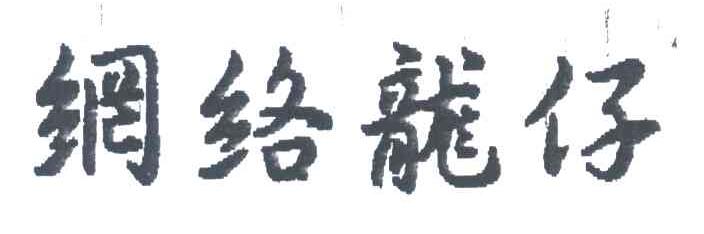 網络龍仔